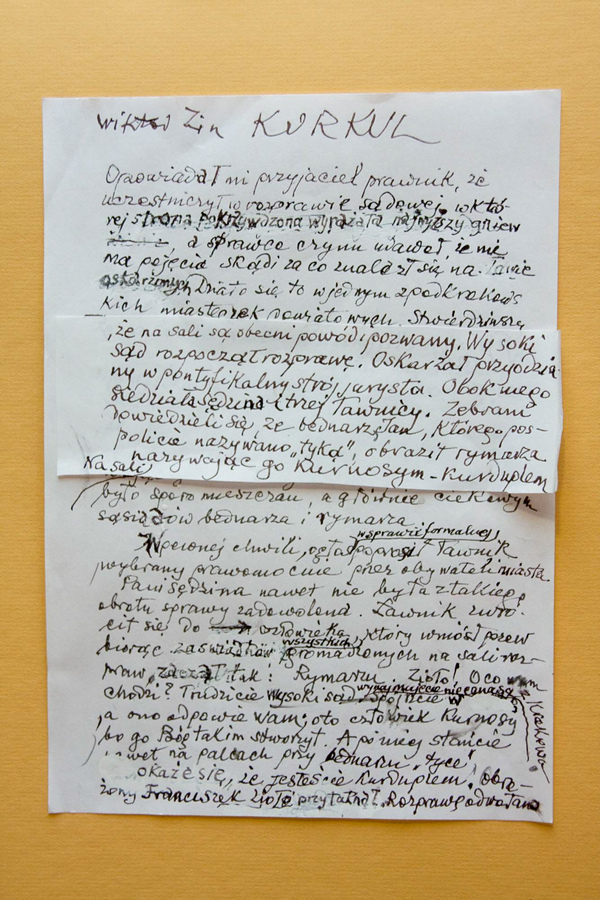 Wiktor Zin KURKUL
Opowiadał mi przyjaciel prawnik, że
uczestniczył w rozprawie sądowej, w któ-
rej strona pokrzywdzona wyrażała najwyższy gniew
, a sprawca czynu udawał, że nie
ma pojęcia skąd i za co znalazł się na ławie
oskarżonych. Działo się to w jednym z podkrakows
kich miasteczek powiatowych. Stwierdziwszy
, że na sali są obecni powód i pozwany. Wysoki
sąd rozpoczął rozprawę. Oskarżał przyodzia
ny w pontyfikalny strój, jurysta. Obok niego
siedziała sędzina i trzej ławnicy. Zebrani
dowiedzieli się, że bednarz Jan, którego pos-
policie nazywano „tyką", obraził rymarza
nazywając go Kurnosym-kurduplem
Na sali
było sporo mieszczan, a głównie ciekawych
sąsiadów bednarza i rymarza
w sprawie formalnej
W pewnej chwili, o głos poprosił Ławnik
wybrany prawomocnie przez obywateli miasta
Pani sędzina nawet nie była z takiego
obrotu sprawy zadowolona. Ławnik zwró-
cił się do człowieka, który wniósł pozew
wszystkich
biorąc za świadków zgromadzonych na sali roz-
praw, zaczął tak: Rymarzu Zioło! O co wam
chodzi? Trudzicie wysoki sąd,
a ono odpowie wam: oto człowiek Kurnosy
bo go Bóg takim stworzył. A później stańcie
nawet na palcach przy bednarzu, tyce
z Krakowa
okaże się, że jesteście Kurduplem. Obra-
żony Franciszek Zioło przytaknął. Rozprawę odwołano